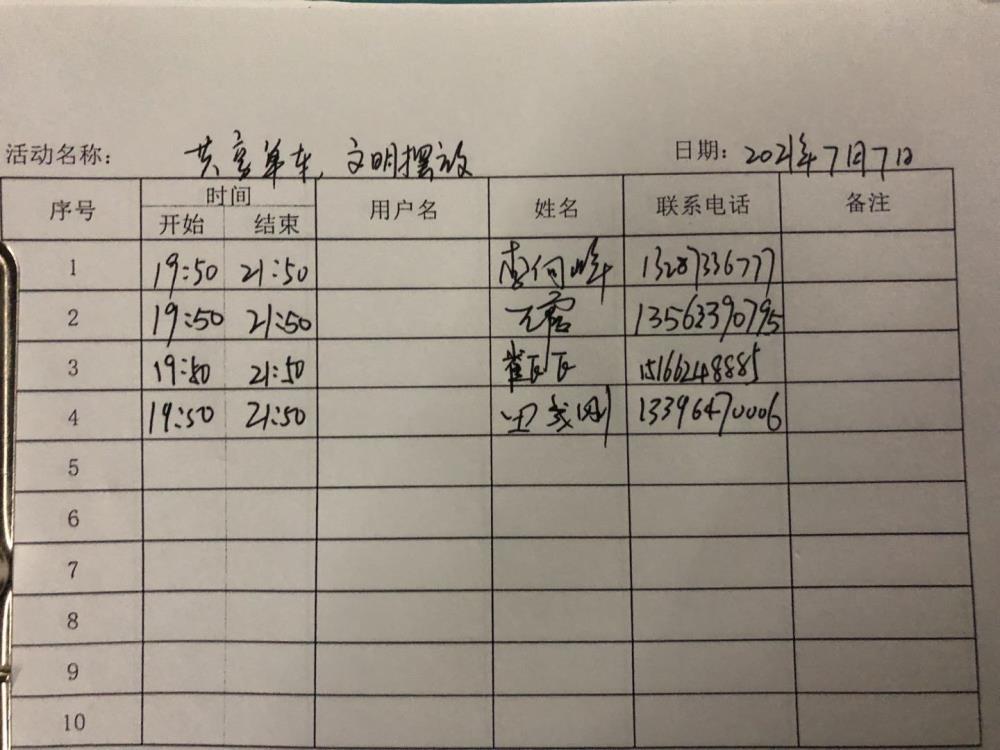 活动名称: 共享单车，文明摆放 日期: 2021年7月7日
序号 时间 用户名 姓名 联系电话 备注
开始 结束
1 19:50 21:50 李何峰 13287336777
2 19:50 21:50 王露 13562390795
3 19:50 21:50 崔瓦瓦 15166248885
4 19:50 21:50 13396470006
5
6
7
8
9
10